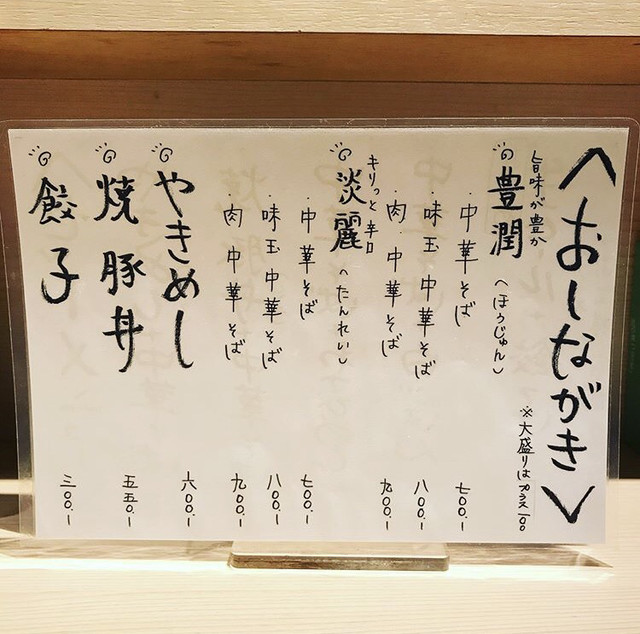 〈おしながき〉
※大盛りはプラス100
旨味が豊か
豊潤〈ほうじゅん〉
・中華そば 七〇〇.-
・味玉中華そば 八〇〇.-
・肉中華そば 九〇〇.-
キリっと辛口
淡麗〈たんれい〉
・中華そば 七〇〇.-
・味玉中華そば 八〇〇.-
・肉中華そば 九〇〇.-
やきめし 六〇〇.-
焼豚丼 五五〇.-
餃子 三〇〇.-